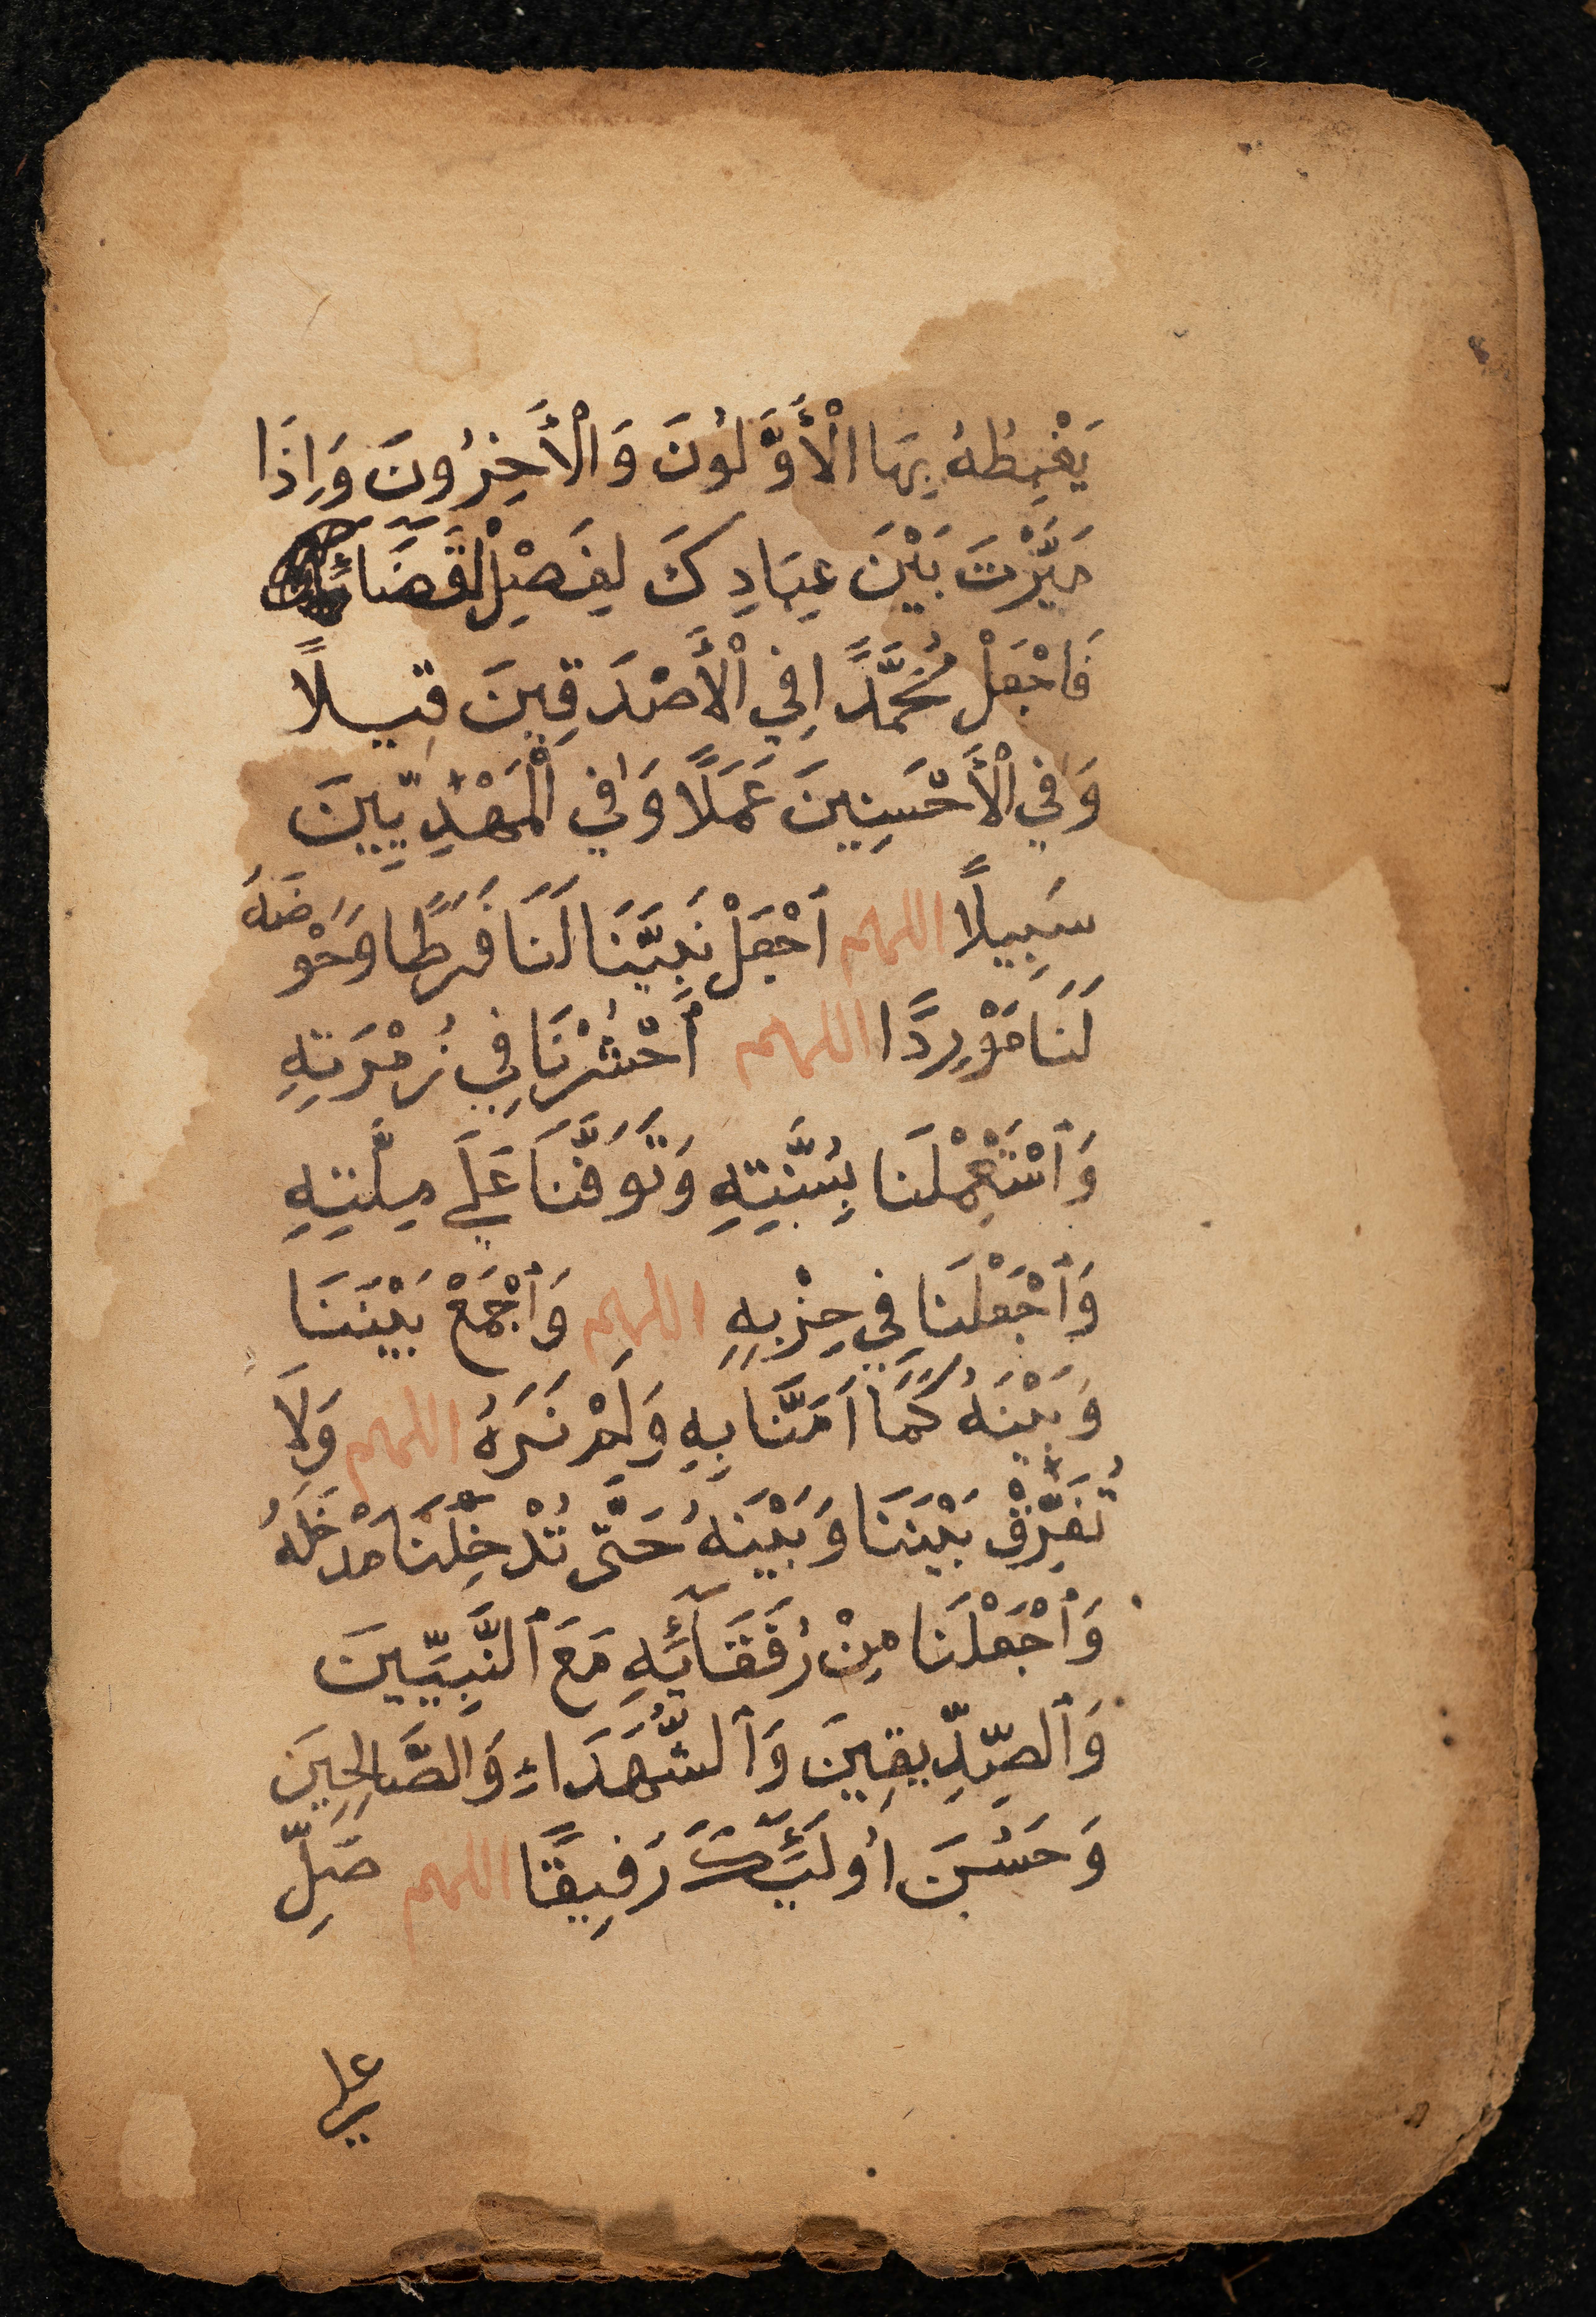 يَغْبِطُهُ بِهَا الْأَوَّلُونَ وَالْأَخِرُونَ وَإِذَا
مَيَّزْتَ بَيْنَ عِبَادِكَ لِفَصْلِ الْقَضَآءِ
فَاجْعَلْ مُحَمَّدًا فِي الْأَصْدَقِينَ قِيلًا
وَفِي الْأَحْسَنِينَ عَمَلًا وَفِي الْمَهْدِيِّينَ
سَبِيلًا اللهم ٱجْعَلْ نَبِيَّنَا لَنَا فَرَطًا وَحَوْضَهُ
لَنَا مَوْرِدًا اللهم ٱحْشُرْنَا فِي زُمْرَتِهِ
وَٱسْتَعْمِلْنَا بِسُنَّتِهِ وَتَوَفَّنَا عَلَي مِلَّتِهِ
وَٱجْعَلْنَا فِي حِزْبِهِ اللهم وَٱجْمَعْ بَيْنَنَا
وَبَيْنَهُ كَمَا اَمَنَّا بِهِ وَلَمْ نَرَهُ اللهم وَلَا
تُفَرِّقْ بَيْنَنَا وَبَيْنَهُ حَتَّى تُدْخِلَنَا مَدْخَلَهُ
وَٱجْعَلْنَا مِنْ رُفَقَآئِهِ مَعَ ٱلنَّبِيِّينَ
وَٱلصِّدِّيقِينَ وَٱلشُّهَدَاءِ وَالصَّالِحِينَ
وَحَسُنَ أُولَئِكَ رَفِيقًا اللهم صَلِّ
علي